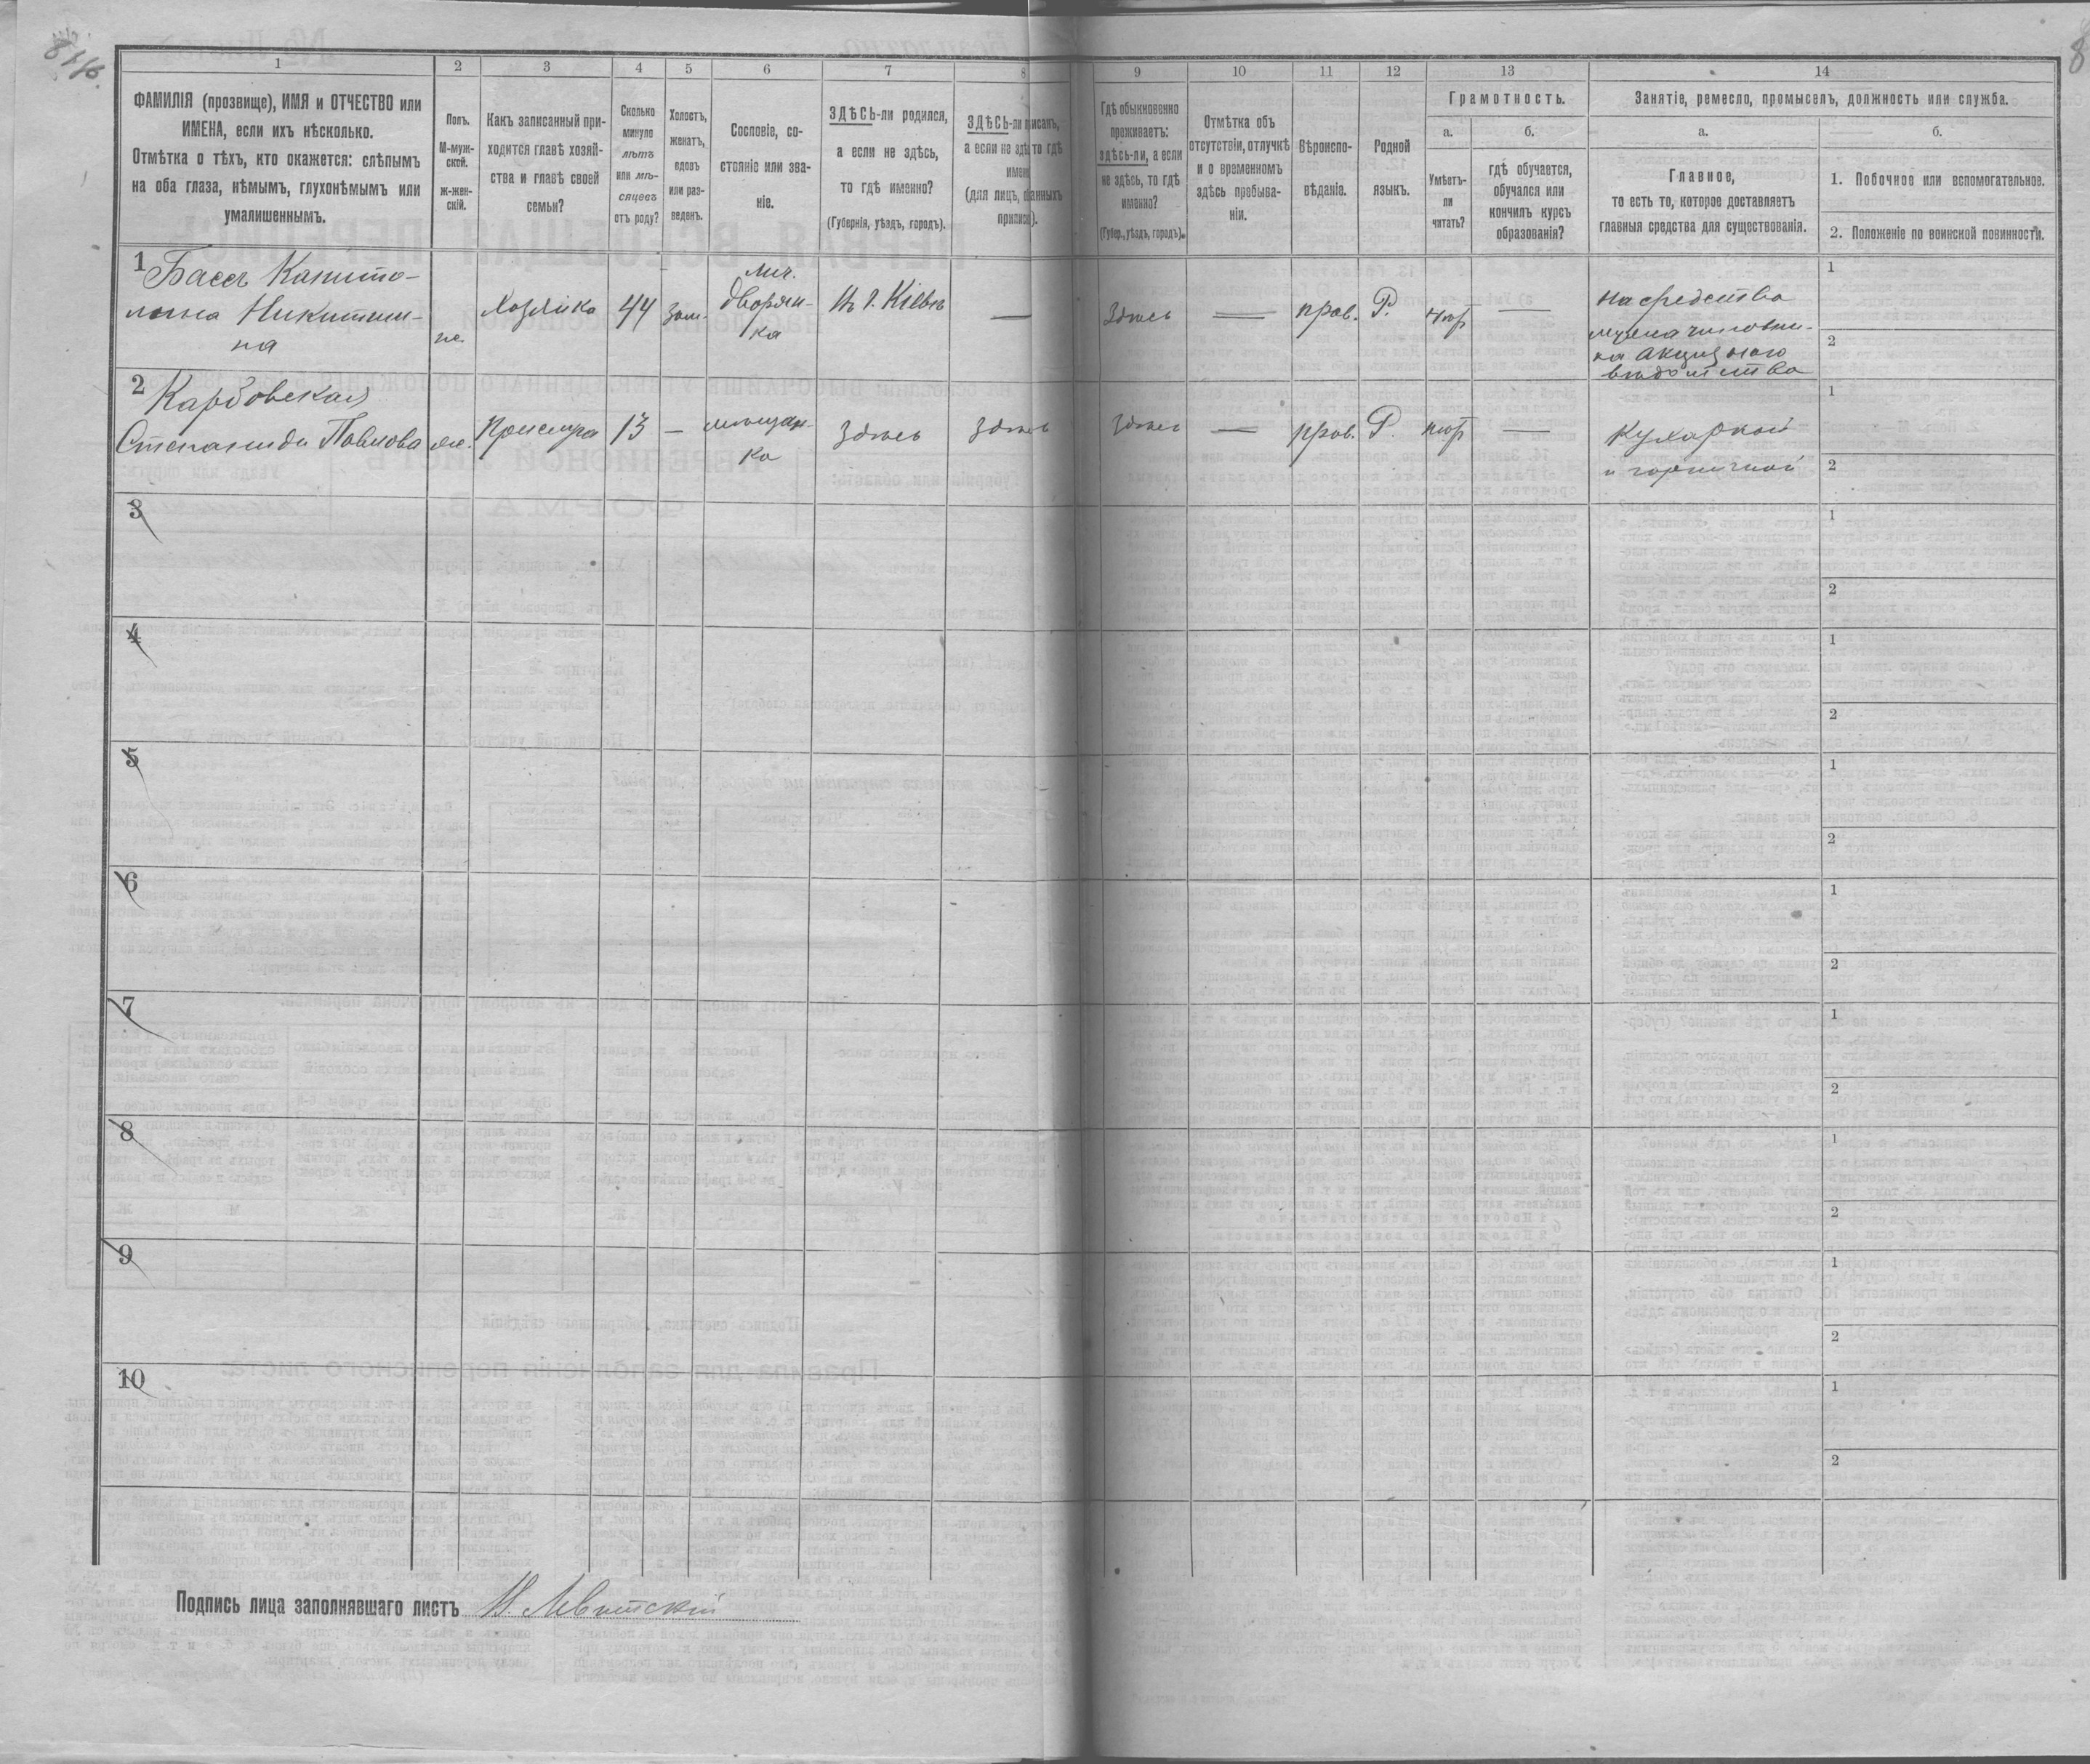 1
2
3
4
5
6
7
8
9
10
11
12
13
14
ФАМИЛІЯ (прозвище), ИМЯ и ОТЧЕСТВО или
ИМЕНА, если ихъ нѣсколько.
Отмѣтка о тѣхъ, кто окажется: слѣпымъ
на оба глаза, нѣмымъ, глухонѣмымъ или
умалишеннымъ.
Полъ.
М-муж-
ской.
ж-жен-
скій.
Какъ записанный при-
ходится главѣ хозяй-
ства и главѣ своей
семьи?
Сколько
минуло
лѣтъ
или мѣ-
сяцевъ
отъ роду?
Холостъ,
женатъ,
вдовъ
или раз-
веденъ.
Сословіе, со-
стояніе или зва-
ніе.
ЗДѢСЬ-ли родился,
а если не здѣсь,
то гдѣ именно?
(Губернія, уѣздъ, городъ).
ЗДѢСЬ-ли
а если не
Гдѣ обыкновенно
проживаетъ:
здѣсь-ли, а если
не здѣсь, то гдѣ
именно?
(Губер., уѣздъ, городъ).
Отмѣтка объ
отсутствіи, отлучкѣ
и о временномъ
здѣсь пребыва-
ніи.
Вѣроиспо-
вѣданіе.
Родной
языкъ.
Грамотность.
а.
Умѣетъ-
ли
читать?
б.
гдѣ обучается,
обучался или
кончилъ курсъ
образованія?
Занятіе, ремесло, промыселъ, должность или служба.
а.
Главное,
то есть то, которое доставляетъ
главныя средства для существованія.
б.
1. Побочное или вспомогательное.
2. Положеніе по воинской повинности.
1
Бассъ Капито-
лина Никитиш-
на
же.
Хозяйка
44
зам.
лич.
дворян-
ка
Въ г. Кіевѣ
—
Здѣсь
—
прав.
Р.
—
на средства
мужа чиновни-
ка акцизнаго
вѣдомства
1
2
2
Карбовская
Степанида Павлова
же.
Прислуга
13
—
мѣщан-
ка
Здѣсь
Здѣсь
Здѣсь
—
прав.
Р.
—
Кухаркой
и горничной
1
2
3
1
2
4
1
2
5
1
2
6
1
2
7
1
2
8
1
2
9
1
2
10
1
2
Подпись лица заполнявшаго листъ Н. Левитскій